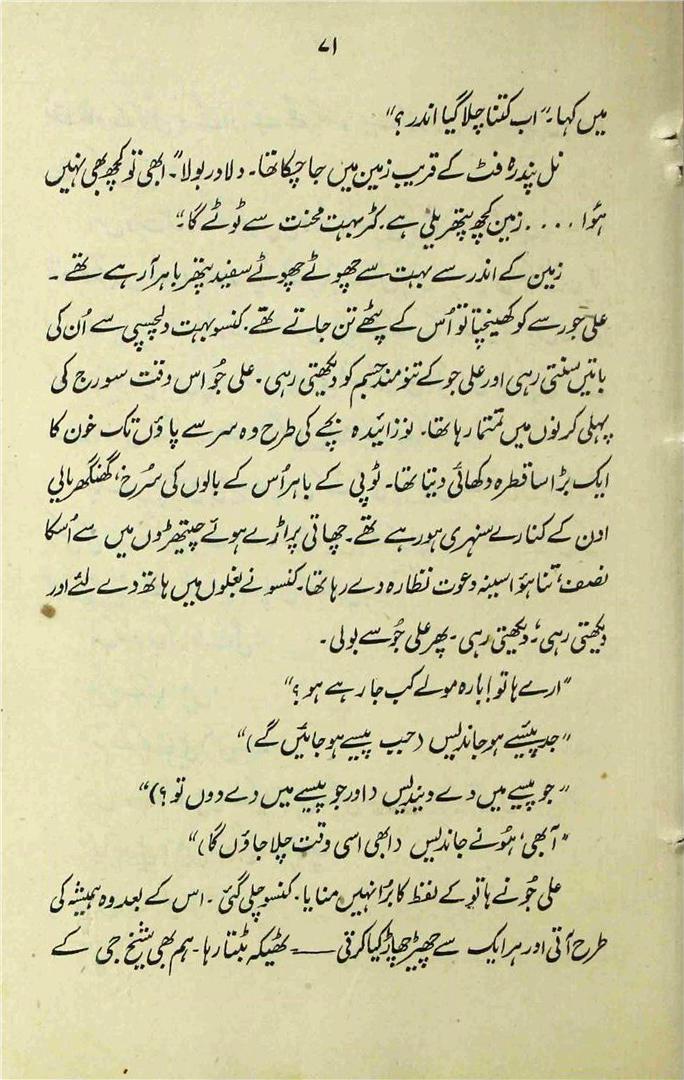 ۷۱
میں کہا۔ "اب کتنا چلا گیا اندر؟"
نل پندرہ فٹ کے قریب زمین میں جا چکا تھا۔ دلاور بولا "۔ ابھی تو کچھ بھی نہیں
ہوٗا .... زمین کچھ پتھریلی ہے۔ کڑ بہت محنت سے ٹوٹے گا۔"
زمین کے اندر سے بہت سے چھوٹے چھوٹے سفید پتھر باہر آ رہے تھے۔
علی جو رسے کو کھینچتا تو اُس کے پٹھے تن جاتے تھے۔ کنسو بہت دلچسپی سے اُن کی
باتیں سنتی رہی اور علی جو کے تنومند جسم کو دیکھتی رہی۔ علی جُو اس وقت سورج کی
پہلی کرنوں میں تمتما رہا تھا۔ نوزائیدہ بچے کی طرح وہ سر سے پاؤں تک خون کا
ایک بڑا سا قطرہ دکھائی دیتا تھا۔ ٹوپی کے باہر اُس کے بالوں کی سُرخ، گھنگھریالی
اون کے کنارے سنہری ہو رہے تھے۔ چھاتی پر اڑے ہوئے چیتھڑوں میں سے اُسکا
نصف، تنا ہؤا سینہ دعوت نظارہ دے رہا تھا۔ کنسو نے بغلوں میں ہاتھ دے لئے اور
دیکھتی رہی، دیکھتی رہی۔ پھر علی جُو سے بولی۔
"ارے ہاتو! بارہ مولے کب جا رہے ہو؟"
"جد پیسے ہو جاندیس (جب پیسے ہو جائیں گے)"
"جو پیسے میں دے دیندیس (اور جو پیسے میں دے دوں تو؟)"
"آبھی، ہُونے جاندیس (ابھی اسی وقت چلا جاؤں گا)"
علی جُو نے ہاتو کے لفظ کا بُرا نہیں منایا۔ کنسو چلی گئی۔ اس کے بعد وہ ہمیشہ کی
طرح آتی اور ہر ایک سے چھیڑ چھاڑ کیا کرتی —— ٹھیکہ بٹتا رہا۔ ہم بھی شیخ جی کے